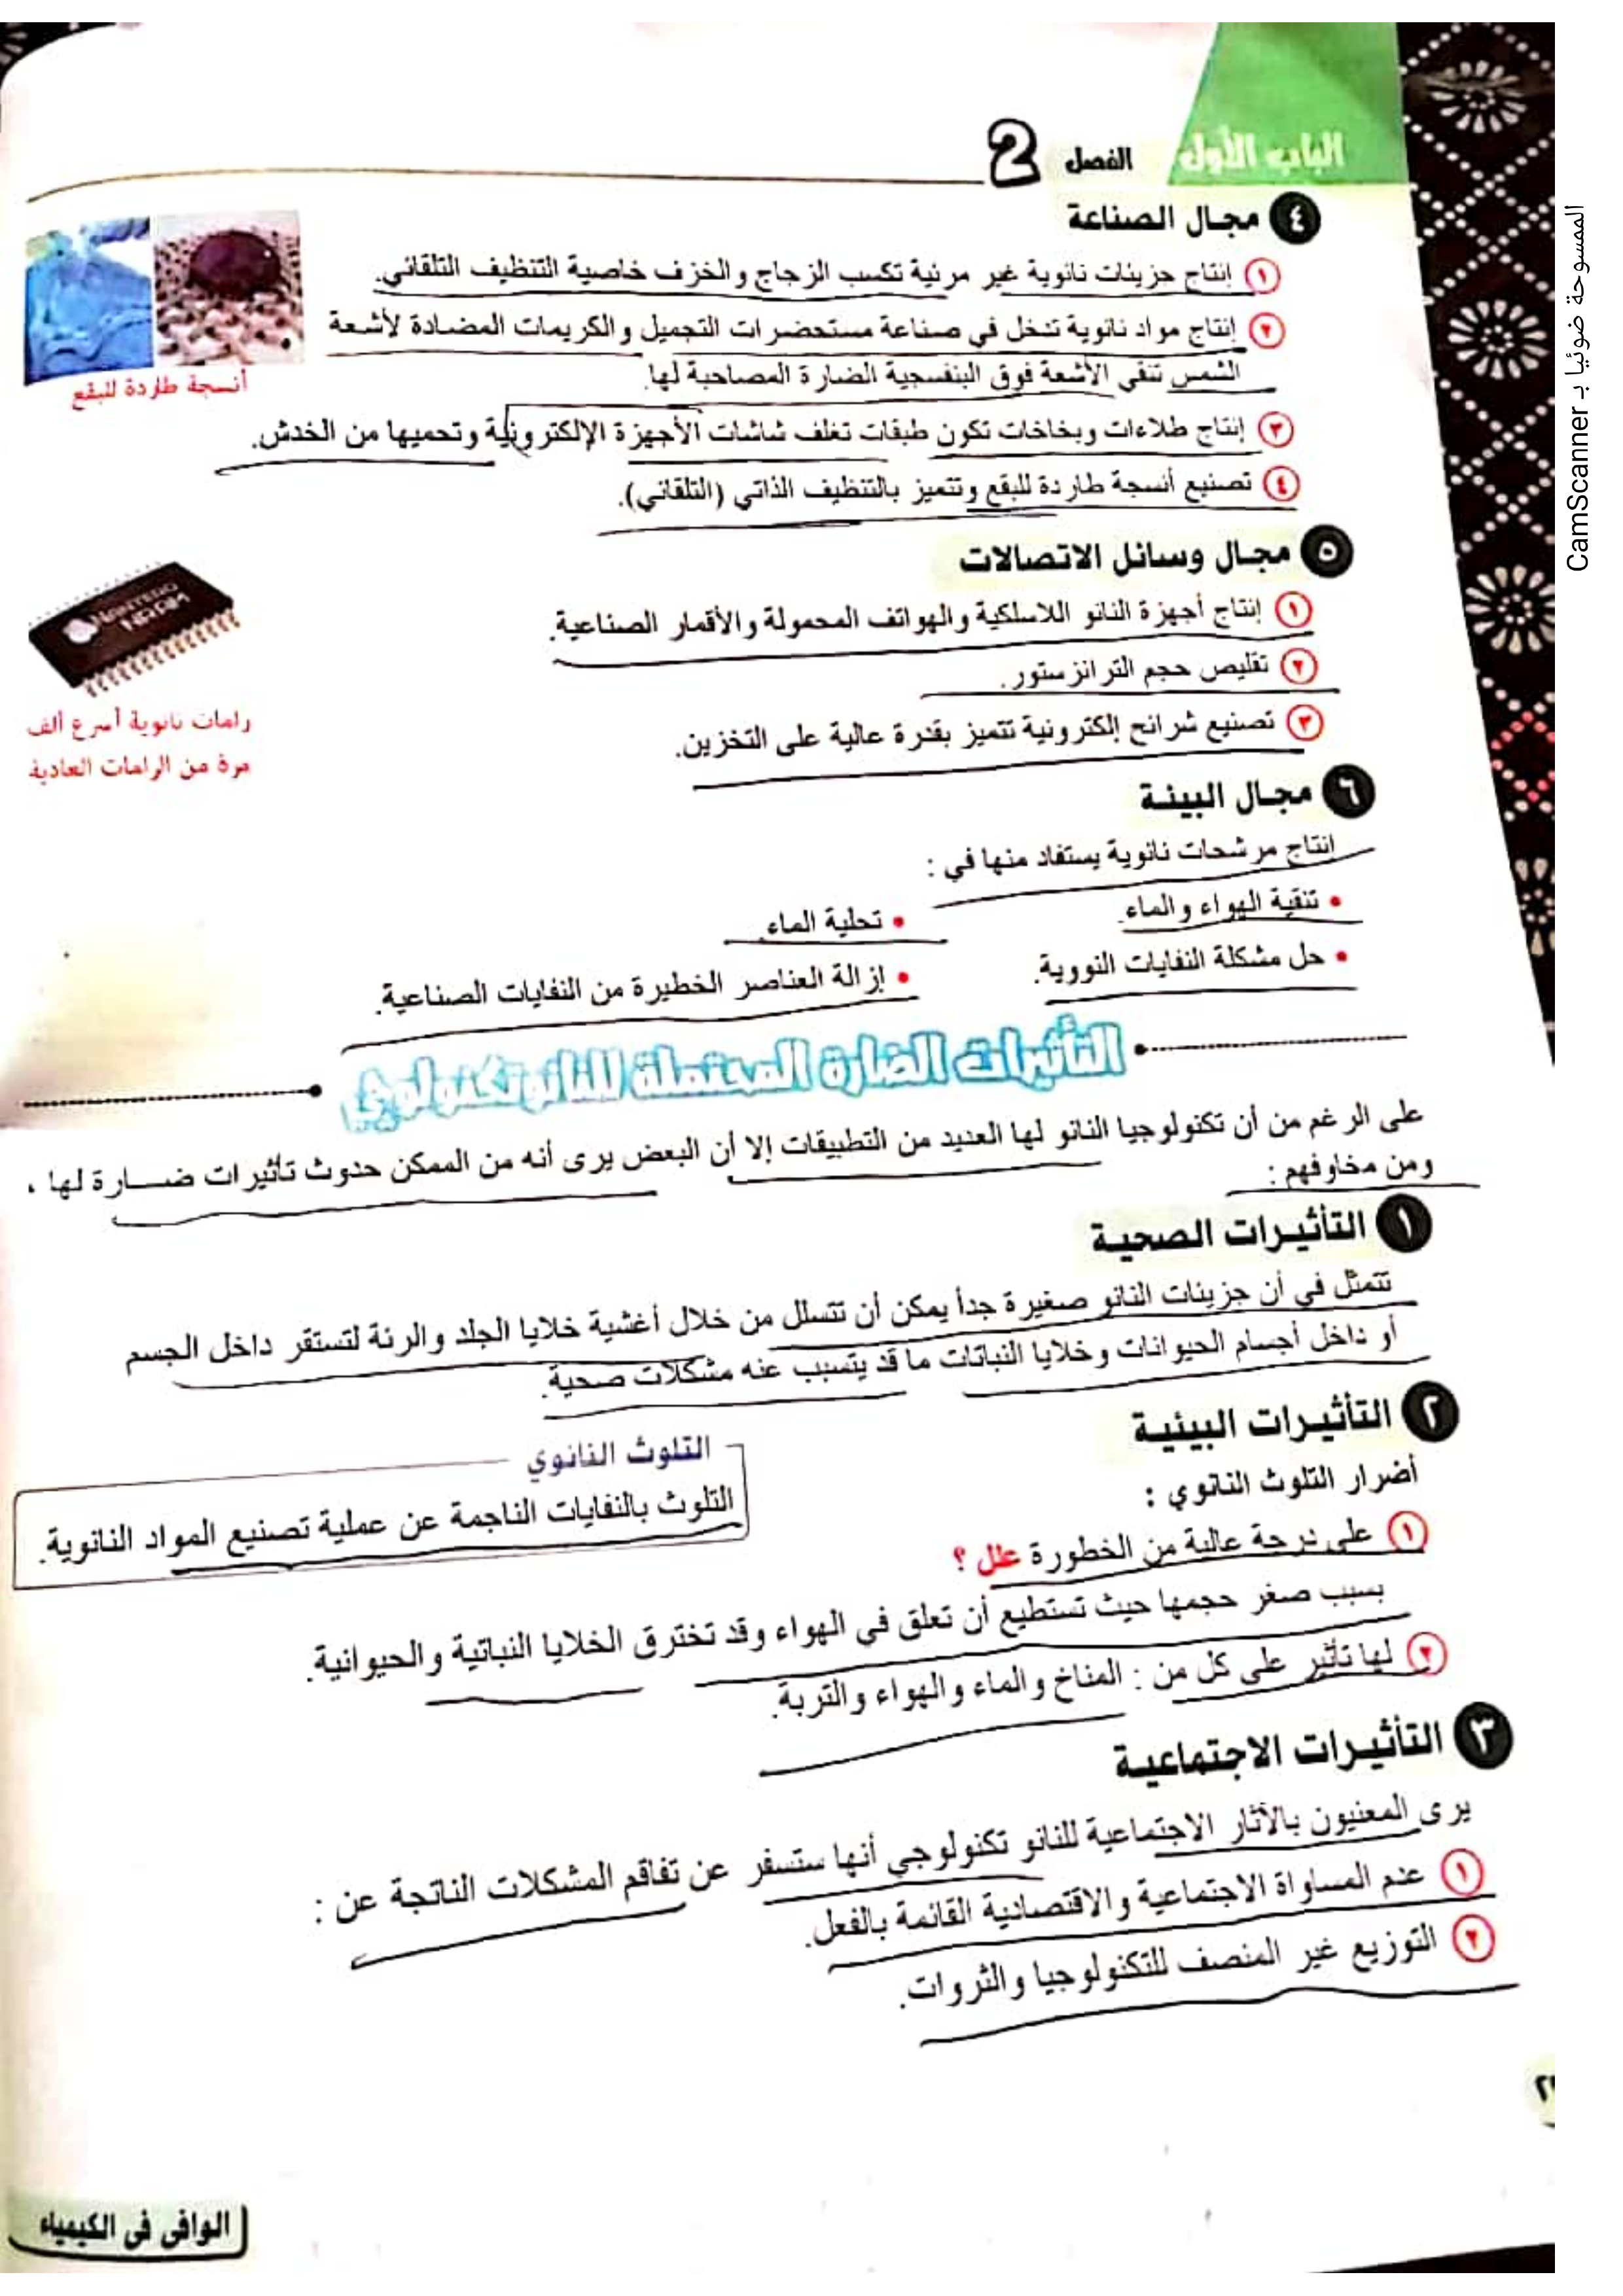 الباب الأول الفصل 2
٤ مجال الصناعة
١ إنتاج جزيئات نانوية غير مرئية تكسب الزجاج والخزف خاصية التنظيف التلقائي.
٢ إنتاج مواد نانوية تدخل في صناعة مستحضرات التجميل والكريمات المضادة لأشعة
الشمس تنقي الأشعة فوق البنفسجية الضارة المصاحبة لها.
أنسجة طاردة للبقع
٣ إنتاج طلاءات وبخاخات تكون طبقات تغلف شاشات الأجهزة الإلكترونية وتحميها من الخدش.
٤ تصنيع أنسجة طاردة للبقع وتتميز بالتنظيف الذاتي (التلقائي).
٥ مجال وسائل الاتصالات
١ إنتاج أجهزة النانو اللاسلكية والهواتف المحمولة والأقمار الصناعية.
٢ تقليص حجم الترانزستور.
٣ تصنيع شرائح إلكترونية تتميز بقدرة عالية على التخزين.
رامات نانوية أسرع ألف
مرة من الرامات العادية
٦ مجال البيئة
انتاج مرشحات نانوية يستفاد منها في :
• تنقية الهواء والماء.
• تحلية الماء.
• حل مشكلة النفايات النووية.
• إزالة العناصر الخطيرة من النفايات الصناعية.
التأثيرات الضارة المحتملة للنانوتكنولوجي
على الرغم من أن تكنولوجيا النانو لها العديد من التطبيقات إلا أن البعض يرى أنه من الممكن حدوث تأثيرات ضارة لها ،
ومن مخاوفهم :
١ التأثيرات الصحية
تتمثل في أن جزيئات النانو صغيرة جداً يمكن أن تتسلل من خلال أغشية خلايا الجلد والرئة لتستقر داخل الجسم
أو داخل أجسام الحيوانات وخلايا النباتات ما قد يتسبب عنه مشكلات صحية.
٢ التأثيرات البيئية
أضرار التلوث النانوي :
التلوث النانوي
التلوث بالنفايات الناجمة عن عملية تصنيع المواد النانوية.
١ على درجة عالية من الخطورة علل ؟
بسبب صغر حجمها حيث تستطيع أن تعلق في الهواء وقد تخترق الخلايا النباتية والحيوانية.
٢ لها تأثير على كل من : المناخ والماء والهواء والتربة.
٣ التأثيرات الاجتماعية
يرى المعنيون بالآثار الاجتماعية للنانو تكنولوجي أنها ستسفر عن تفاقم المشكلات الناتجة عن :
١ عدم المساواة الاجتماعية والاقتصادية القائمة بالفعل.
٢ التوزيع غير المنصف للتكنولوجيا والثروات.
الوافي في الكيمياء
الممسوحة ضوئيا بـ CamScanner